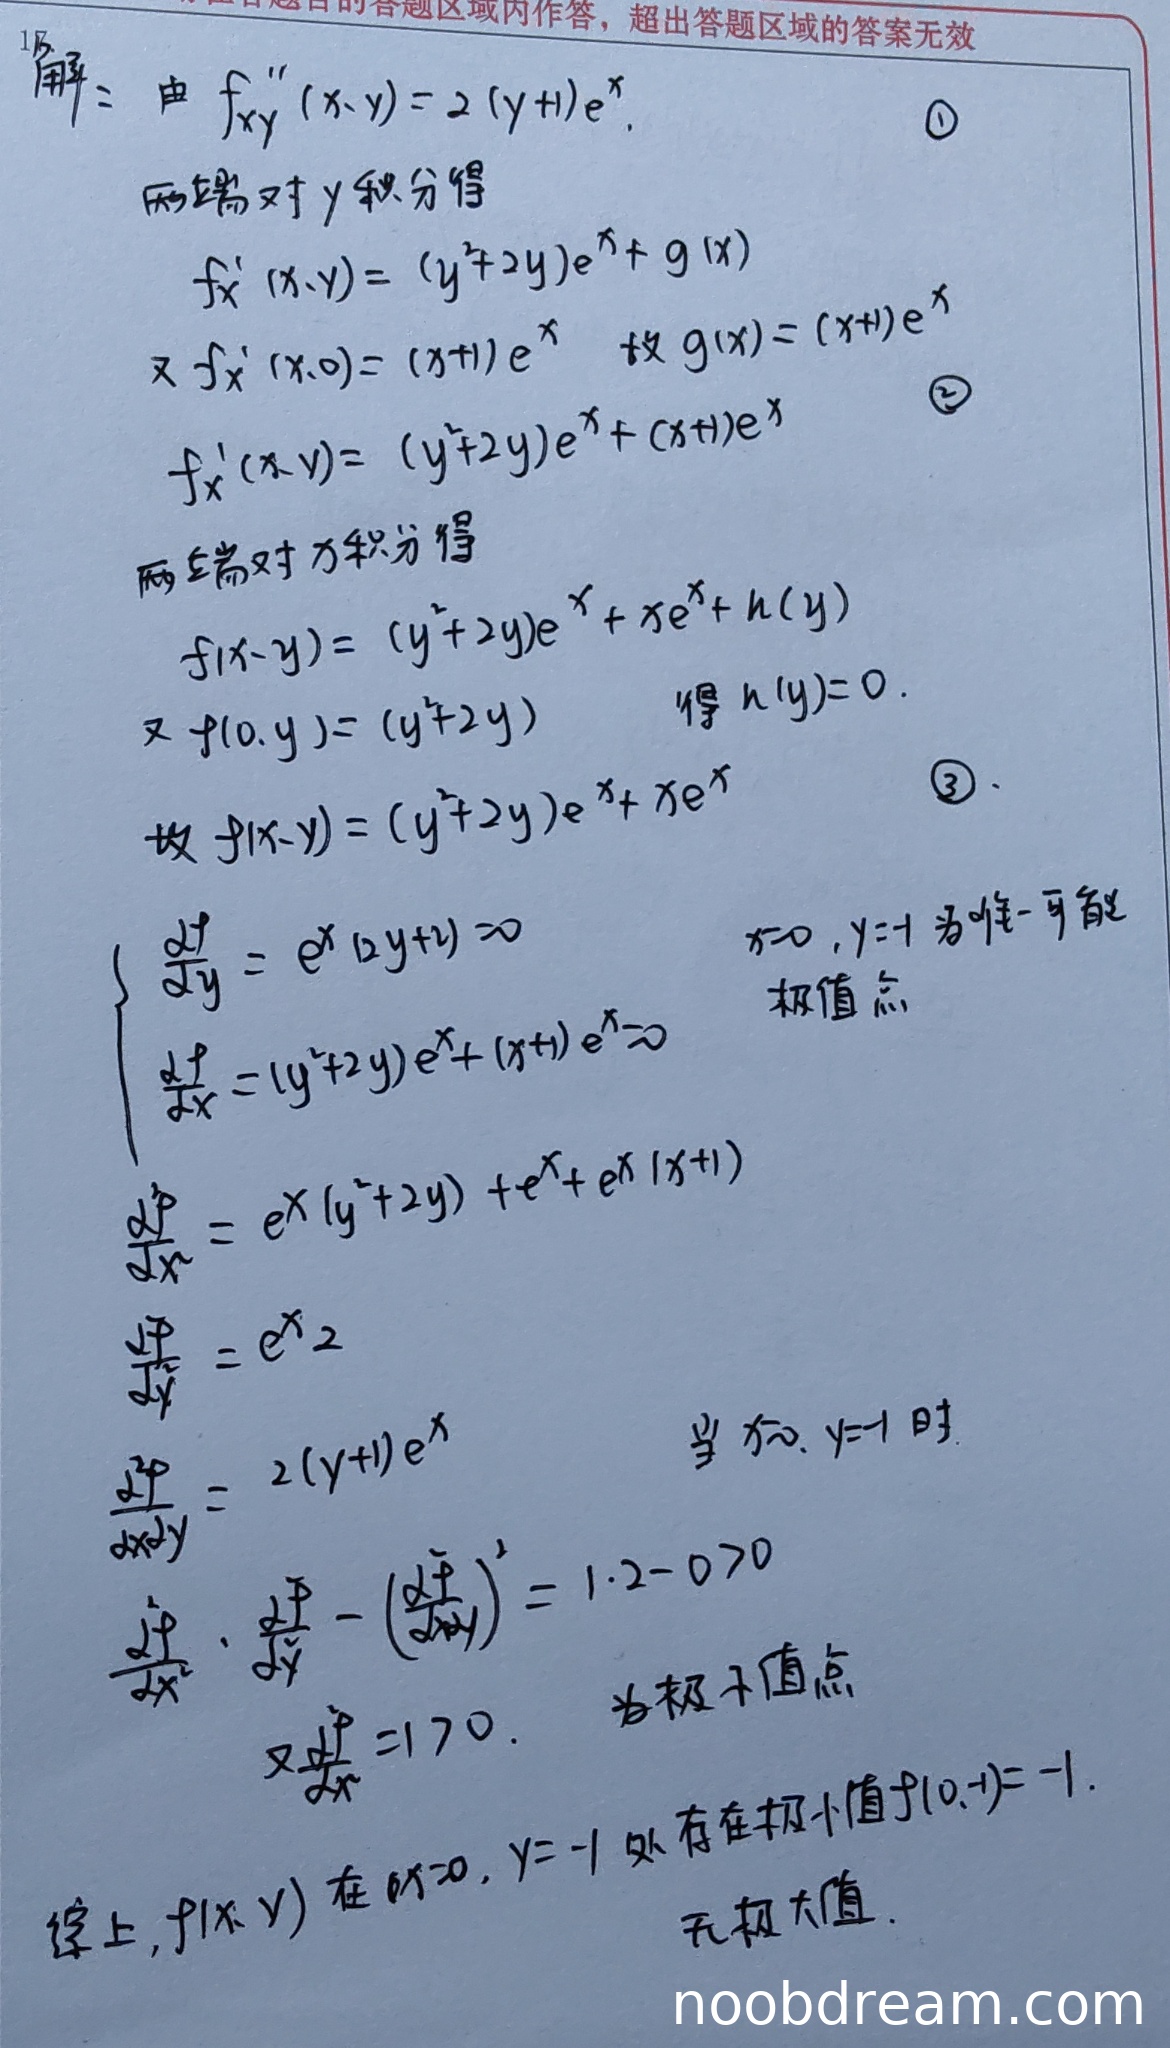 答题区域内作答，超出答题区域的答案无效
解: 由 f''xy (x、y) = 2 (y+1)e^x. ①
两端对 y 积分得
f'x (x、y) = (y²+2y)e^x + g(x)
又 f'x (x、0) = (x+1)e^x 故 g(x) = (x+1)e^x
②
f'x (x、y) = (y²+2y)e^x + (x+1)e^x
两端对 x 积分得
f(x、y) = (y²+2y)e^x + xe^x + h(y)
又 f(0、y) = (y²+2y) 得 h(y)=0.
故 f(x、y) = (y²+2y)e^x + xe^x ③.
∂f/∂y = e^x (2y+2) = 0 x=0，y=-1 为唯一可能
极值点
∂f/∂x = (y²+2y)e^x + (x+1)e^x = 0
∂²f/∂x² = e^x (y²+2y) + e^x + e^x (x+1)
∂²f/∂y² = e^x 2
∂²f/∂x∂y = 2(y+1)e^x 当 x=0、y=-1 时.
∂²f/∂x² · ∂²f/∂y² - (∂²f/∂x∂y)² = 1·2-0>0
又 ∂²f/∂x² = 1>0. 为极小值点
综上，f(x、y) 在 x=0，y=-1 处存在极小值 f(0、-1)= -1.
无极大值.
noobdream.com